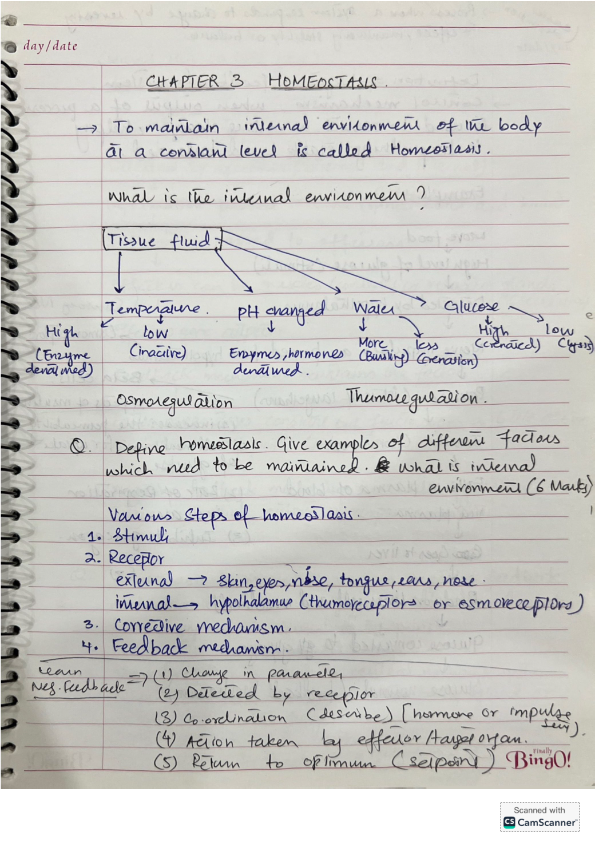 day/date
CHAPTER 3 HOMEOSTASIS.
→ To maintain internal environment of the body
at a constant level is called Homeostasis.
What is the internal environment?
Tissue fluid.
Temperature. pH changed Water Glucose
High (Enzyme denatured) Low (inactive) Enzymes, hormones denatured. More (Bursting) less (crenation) High (crenated) Low (lysis)
Osmoregulation Thermoregulation.
Q. Define homeostasis. Give examples of different factors
which need to be maintained. What is internal
environment (6 Marks)
Various Steps of homeostasis.
1. Stimuli
2. Receptor
external → skin, eyes, nose, tongue, ears, nose.
internal → hypothalamus (thermoreceptors or osmoreceptors)
3. Corrective mechanism.
4. Feedback mechanism.
Learn
Neg. Feedback ⇒ (1) Change in parameter
(2) Detected by receptor
(3) Co-ordination (describe) [hormone or impulse sent).
(4) Action taken by effector/target organ.
(5) Return to optimum (setpoint)
Finally
BingO!
Scanned with
CS CamScanner